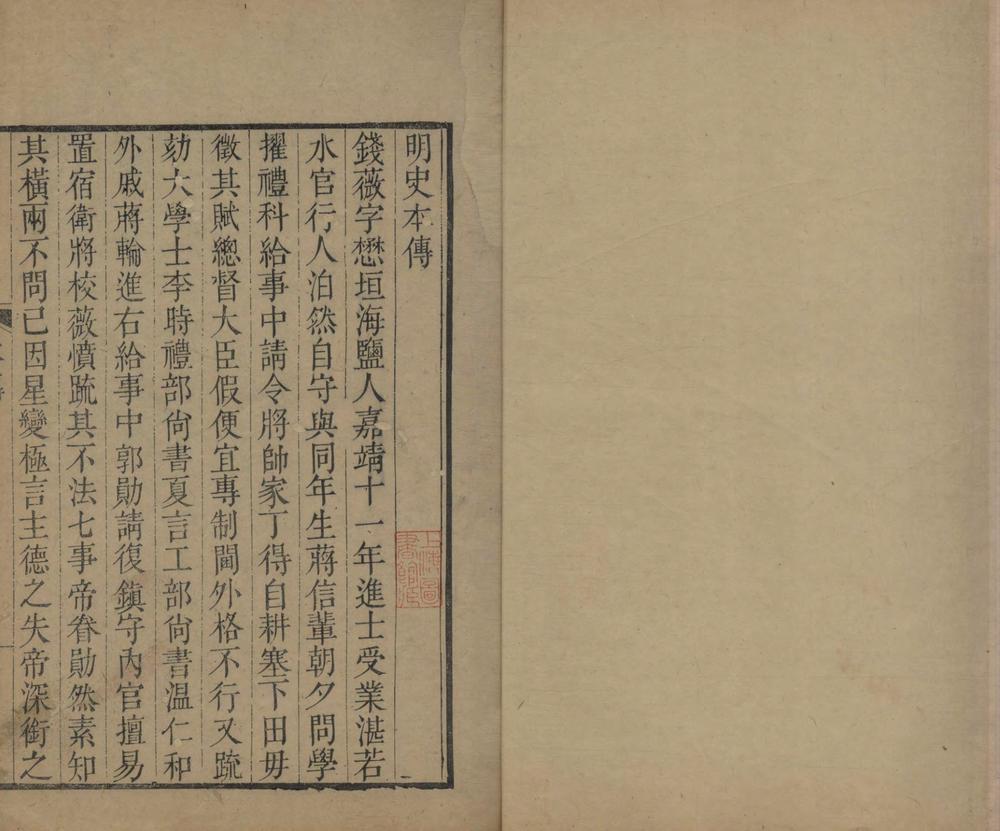 明史本傳
錢薇字懋垣海鹽人嘉靖十一年進士受業湛若
水官行人泊然自守與同年生蔣信輩朝夕問學
擢禮科給事中請令將帥家丁得自耕塞下田毋
徵其賦總督大臣假便宜專制閫外格不行又疏
劾大學士李時禮部尙書夏言工部尙書溫仁和
外戚蔣輪進右給事中郭勛請復鎮守內官擅易
置宿衛將校薇憤疏其不法七事帝眷勛然素知
其橫兩不問已因星變極言主德之失帝深銜之
上海圖書館藏